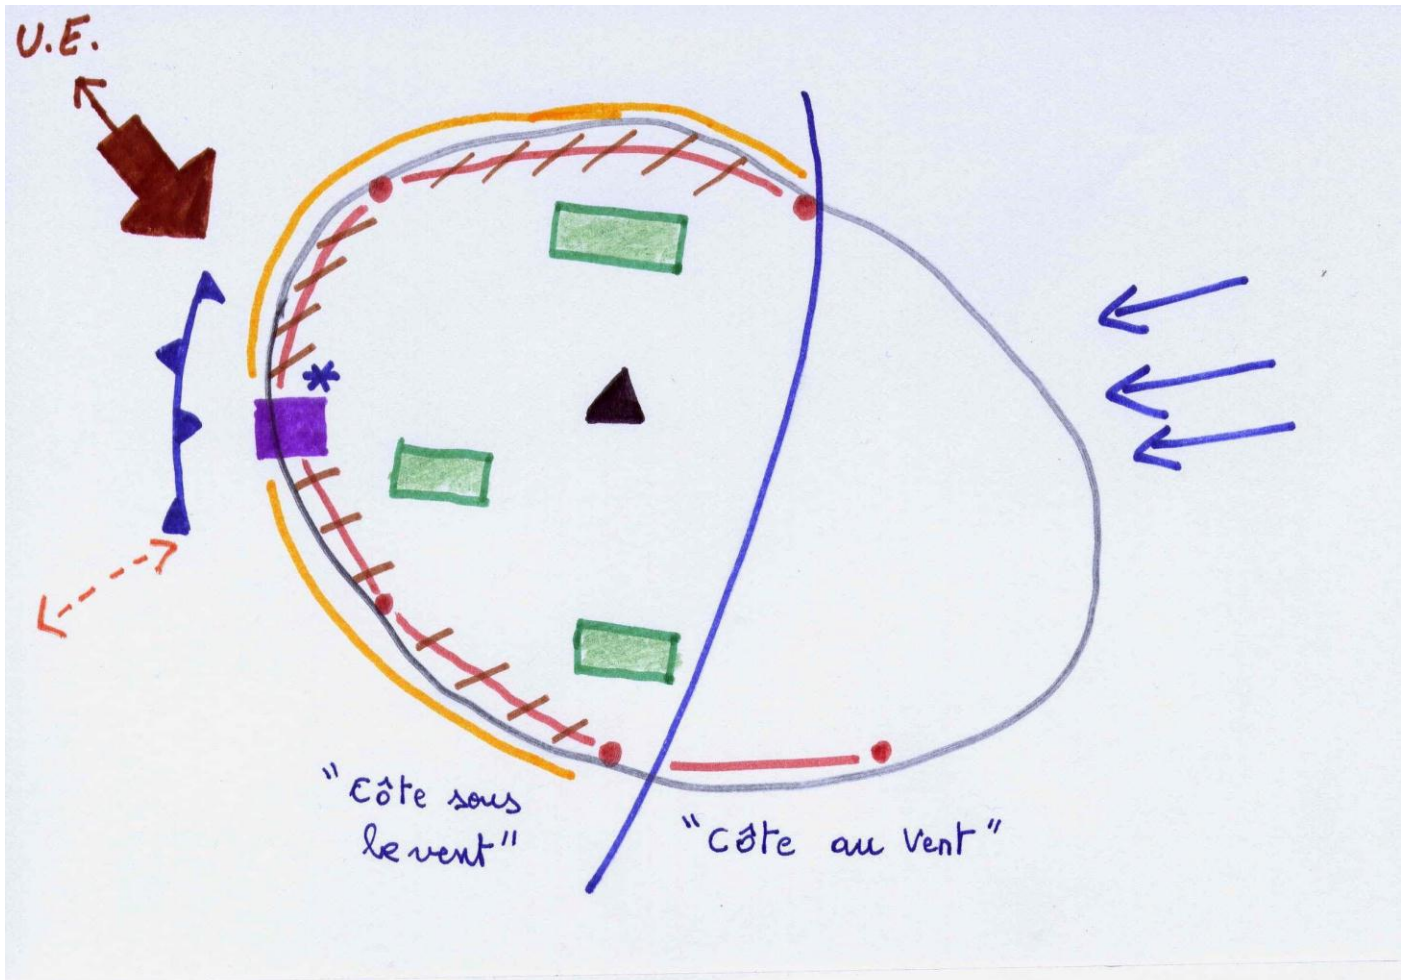 U.E.
"Côte sous
le vent"
"Côte au Vent"